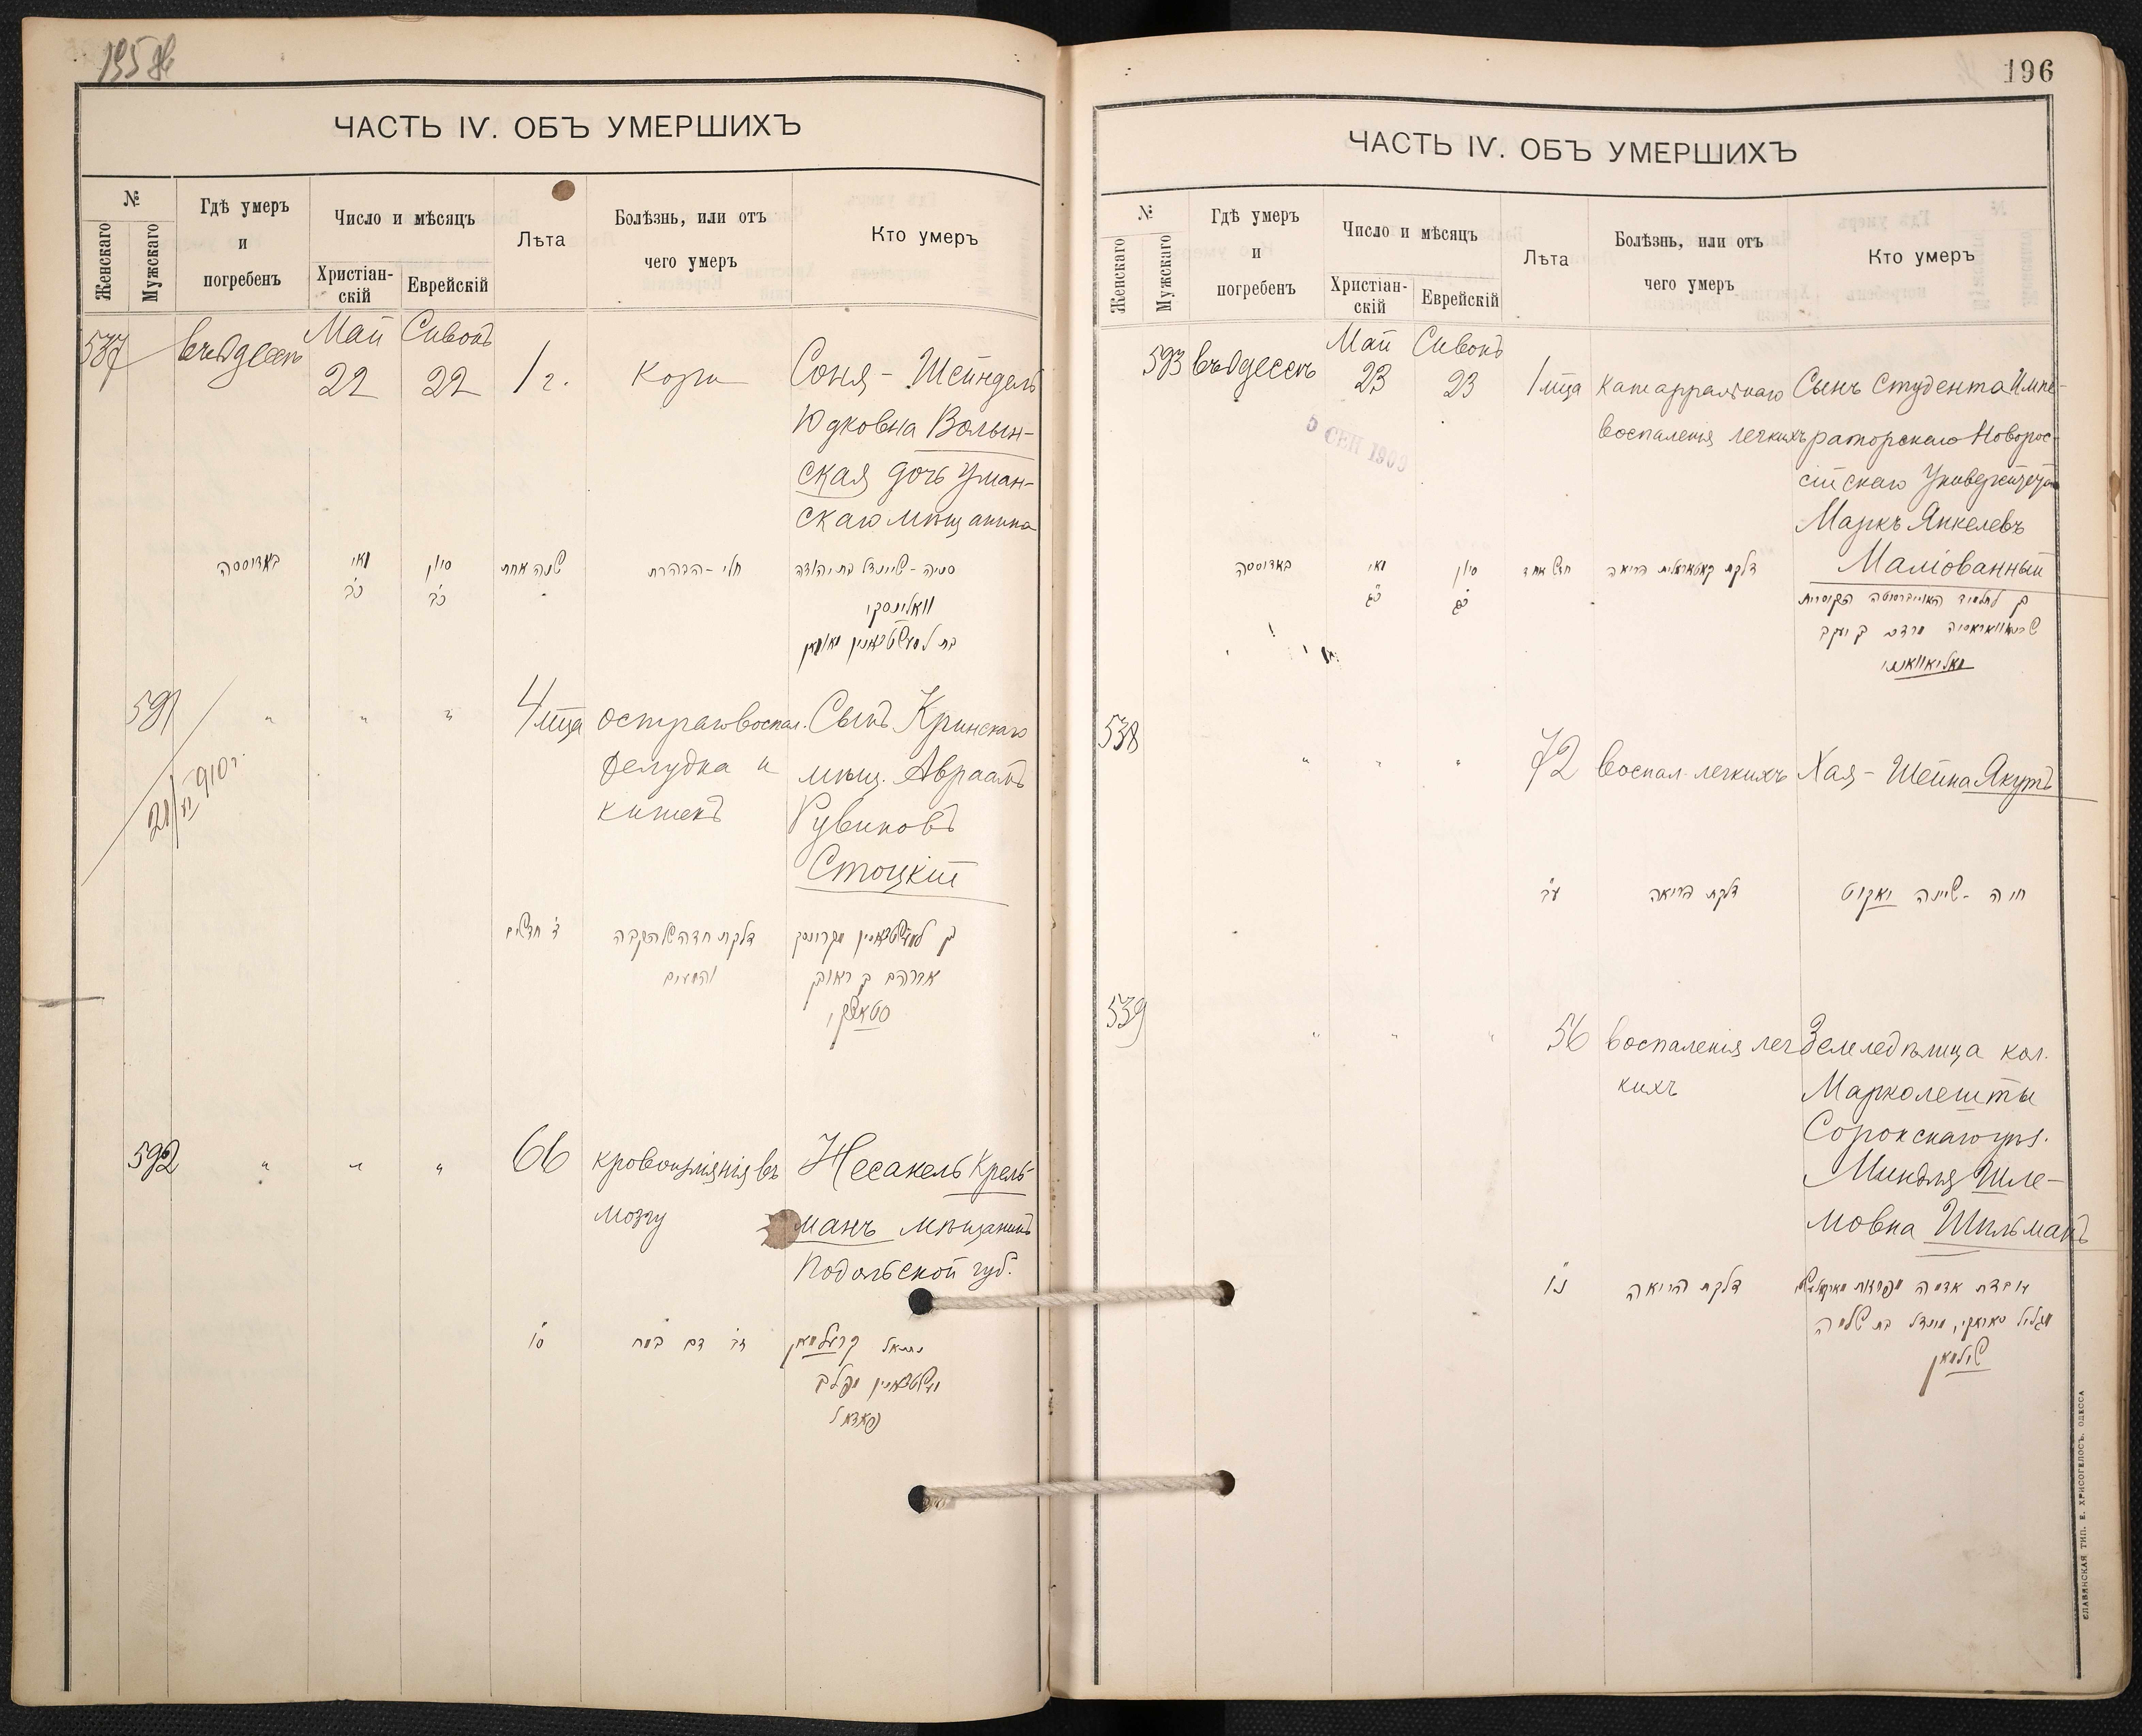 195 об
ЧАСТЬ IV. ОБЪ УМЕРШИХЪ
№
Женскаго
Мужскаго
Гдѣ умеръ
и
погребенъ
Число и мѣсяцъ
Христіан-
скій
Еврейскій
Лѣта
Болѣзнь, или отъ
чего умеръ
Кто умеръ
537
въ Одессѣ
Май
22
Сивонъ
22
1 г.
Кори
Соня - Шейндель
Юдковна Волын-
ская дочь Уман-
скаго мѣщанина
באדוסטה
מאי
כב
סיון
כב
שנה אחת
חלי-הבהרת
סוניה-שיינדל בת יהודה
וואלינסקי
591
"
"
"
4 мѣца
остраго воспал.
желудка и
кишекъ
Сынъ Кринскаго
мѣщ. Авраамъ
Рувиновъ
Стоцкій
21/VI 910 г.
ד חדשים
דלקת חדה של הקבה
והמעים
אברהם בן ראובן
סטאצקי
592
"
"
"
66
кровоизліянія въ
мозгу
Несанель Крель-
манъ мѣщанинъ
Подольской губ.
סו
זב דם במח
נתנאל קרעלמאן
196
ЧАСТЬ IV. ОБЪ УМЕРШИХЪ
№
Женскаго
Мужскаго
Гдѣ умеръ
и
погребенъ
Число и мѣсяцъ
Христіан-
скій
Еврейскій
Лѣта
Болѣзнь, или отъ
чего умеръ
Кто умеръ
593
въ Одессѣ
Май
23
Сивонъ
23
1 мѣца
катарральнаго
воспаленія легкихъ
Сынъ студента Импе-
раторскаго Новорос-
сійскаго Университета
Маркъ Янкелевъ
Маліованный
5 СЕН 1909
באדוסטה
מאי
כג
סיון
כג
חדש אחד
דלקת קאטאראלית הריאה
538
"
"
"
72
воспал. легкихъ
Хая - Шейна Якутъ
עב
דלקת הריאה
חיה - שיינה יאקוט
539
"
"
"
56
воспаленія лег-
кихъ
Земледѣлица кол.
Марколешты
Сорокскаго уѣз.
Миндля Шле-
мовна Шильманъ
נו
דלקת הריאה
שילמאן
СЛАВЯНСКАЯ ТИП. Е. ХРИСОГЕЛОСЪ. ОДЕССА